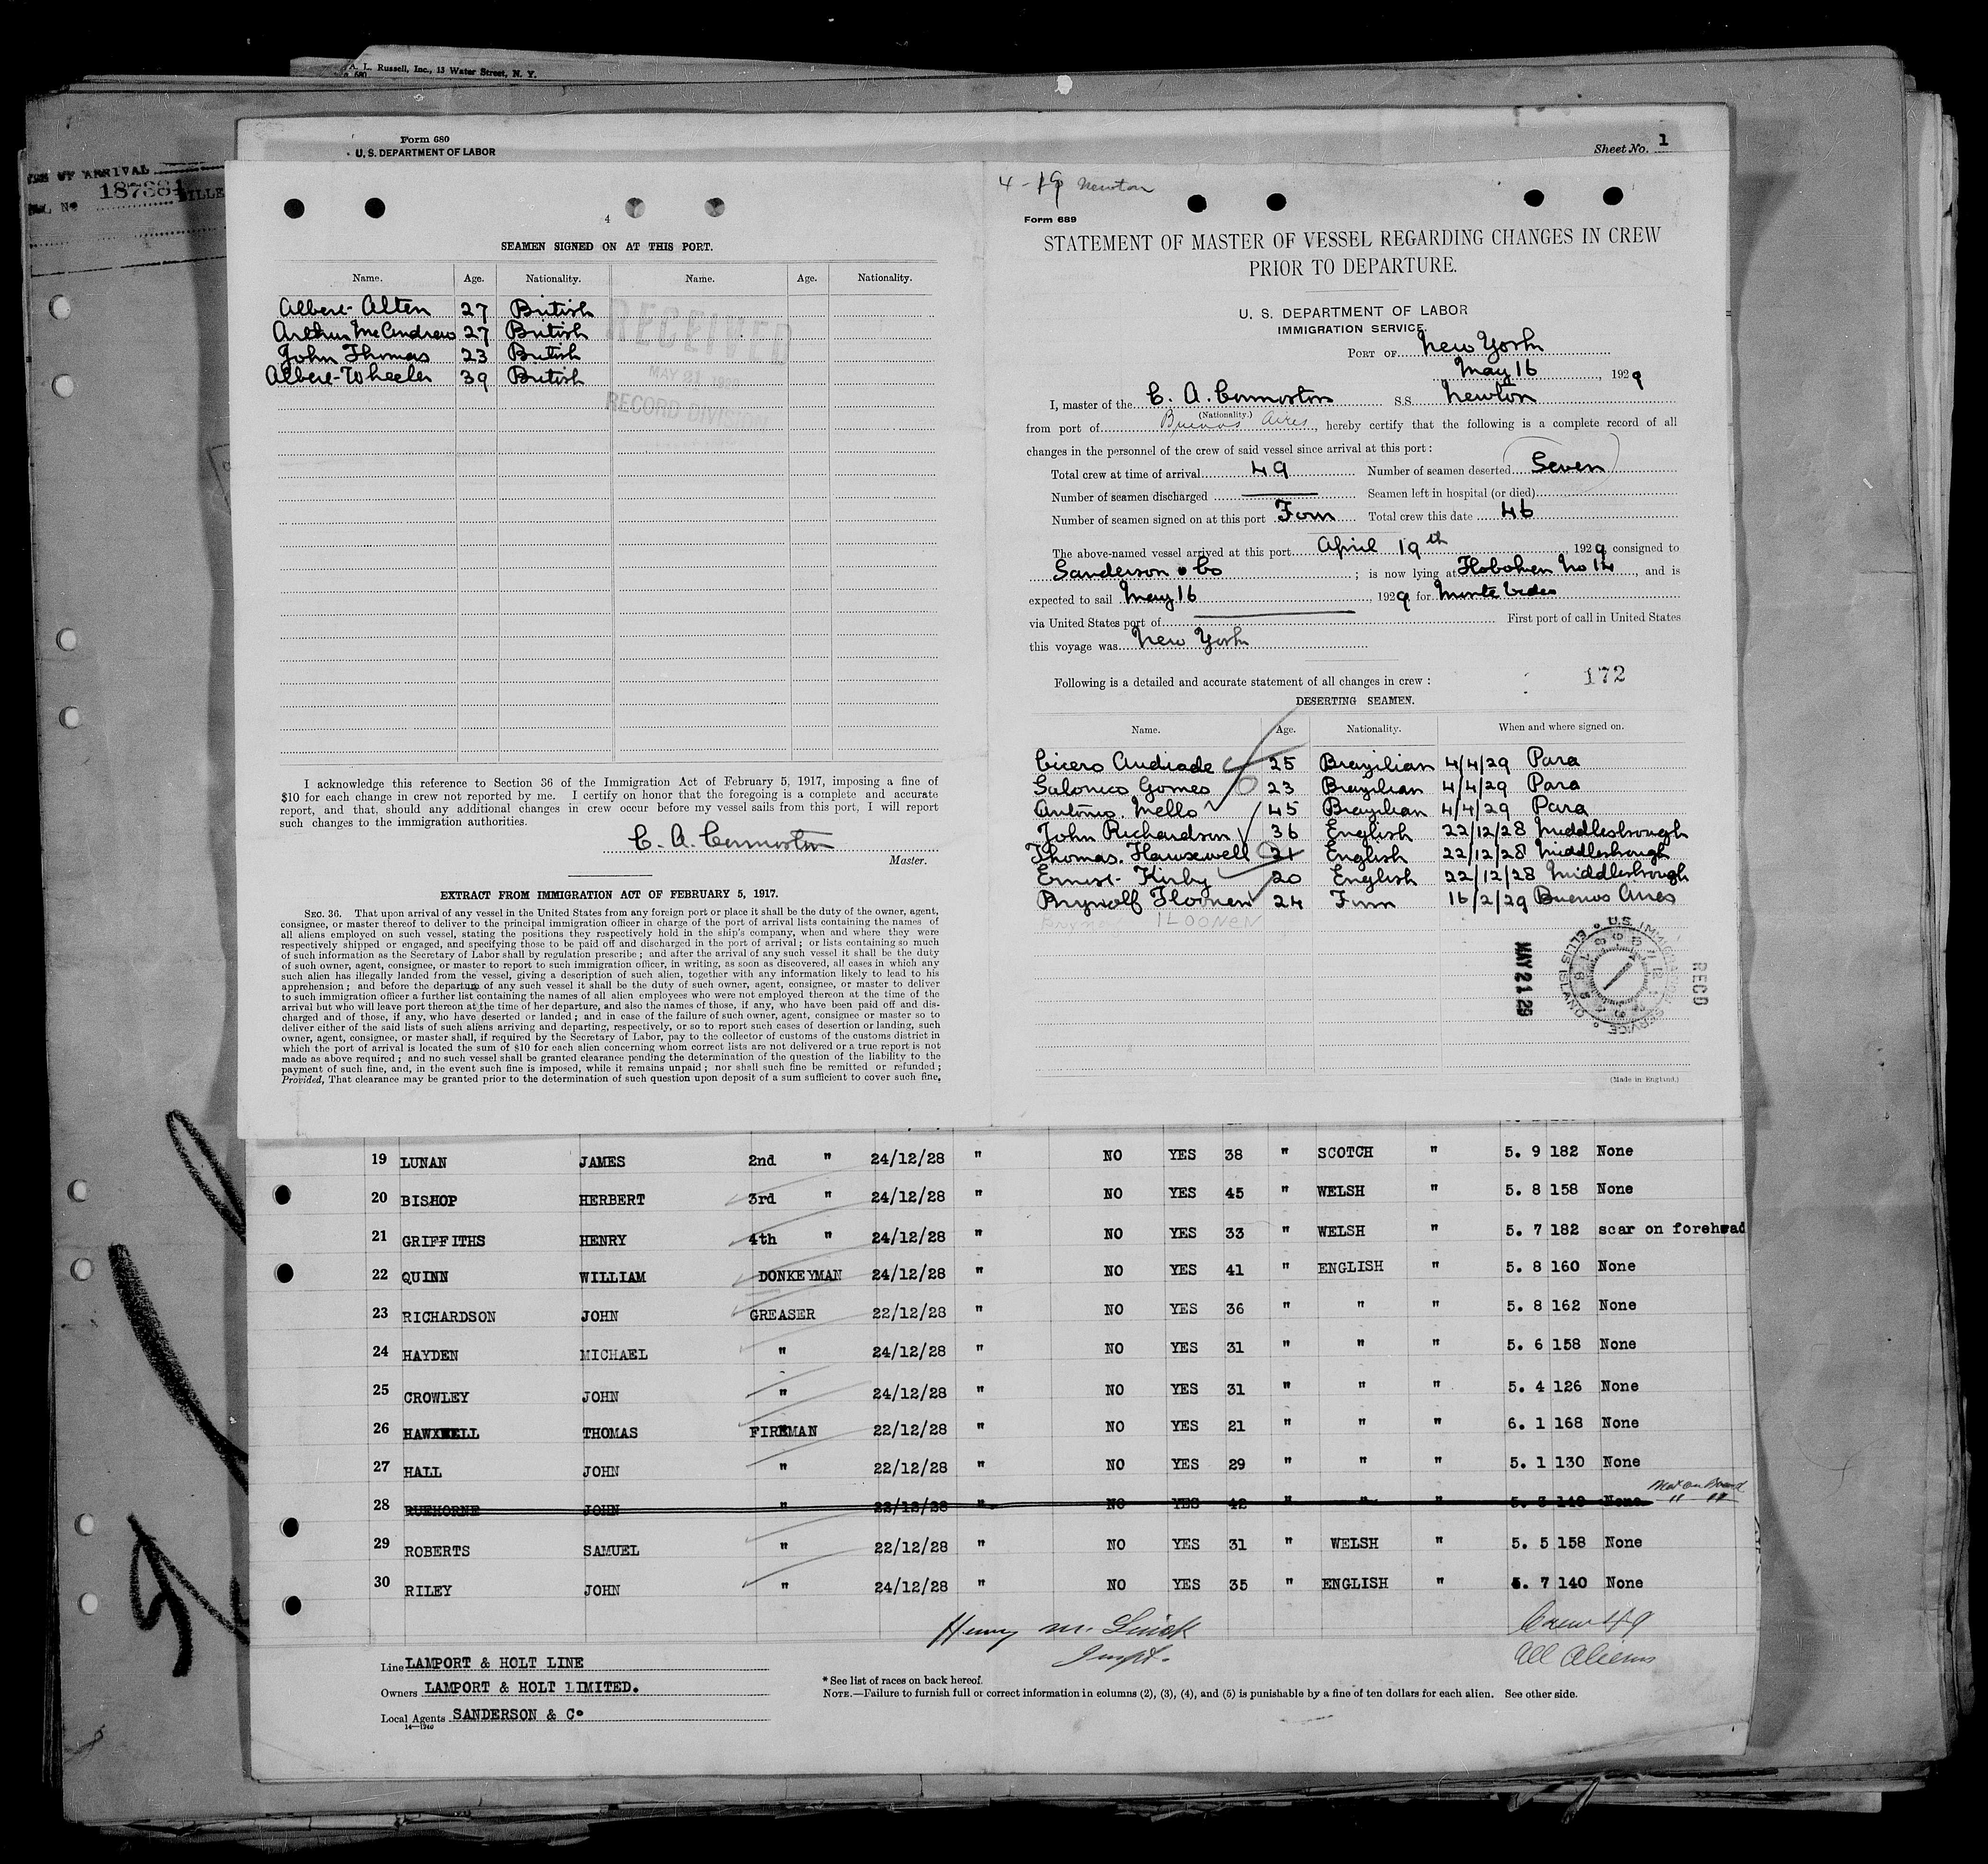 A. L. Russell, Inc., 13 Water Street, N. Y.
680
OF ARRIVAL
187384
Form 680
U. S. DEPARTMENT OF LABOR
Sheet No. 1
4
SEAMEN SIGNED ON AT THIS PORT.
Name. Age. Nationality. Name. Age. Nationality.
Albert Alten 27 British
Arthur McAndrew 27 British
John Thomas 23 British
Albert Wheeler 39 British
RECEIVED
MAY 21 1929
RECORD DIVISION
I acknowledge this reference to Section 36 of the Immigration Act of February 5, 1917, imposing a fine of
$10 for each change in crew not reported by me. I certify on honor that the foregoing is a complete and accurate
report, and that, should any additional changes in crew occur before my vessel sails from this port, I will report
such changes to the immigration authorities.
C. A.
Master.
EXTRACT FROM IMMIGRATION ACT OF FEBRUARY 5, 1917.
SEC. 36. That upon arrival of any vessel in the United States from any foreign port or place it shall be the duty of the owner, agent,
consignee, or master thereof to deliver to the principal immigration officer in charge of the port of arrival lists containing the names of
all aliens employed on such vessel, stating the positions they respectively hold in the ship's company, when and where they were
respectively shipped or engaged, and specifying those to be paid off and discharged in the port of arrival; or lists containing so much
of such information as the Secretary of Labor shall by regulation prescribe; and after the arrival of any such vessel it shall be the duty
of such owner, agent, consignee, or master to report to such immigration officer, in writing, as soon as discovered, all cases in which any
such alien has illegally landed from the vessel, giving a description of such alien, together with any information likely to lead to his
apprehension; and before the departure of any such vessel it shall be the duty of such owner, agent, consignee, or master to deliver
to such immigration officer a further list containing the names of all alien employees who were not employed thereon at the time of the
arrival but who will leave port thereon at the time of her departure, and also the names of those, if any, who have been paid off and dis-
charged and of those, if any, who have deserted or landed; and in case of the failure of such owner, agent, consignee or master so to
deliver either of the said lists of such aliens arriving and departing, respectively, or so to report such cases of desertion or landing, such
owner, agent, consignee, or master, shall, if required by the Secretary of Labor, pay to the collector of customs of the customs district in
which the port of arrival is located the sum of $10 for each alien concerning whom correct lists are not delivered or a true report is not
made as above required; and no such vessel shall be granted clearance pending the determination of the question of the liability to the
payment of such fine, and, in the event such fine is imposed, while it remains unpaid; nor shall such fine be remitted or refunded;
Provided, That clearance may be granted prior to the determination of such question upon deposit of a sum sufficient to cover such fine.
4-19 Newton
Form 689
STATEMENT OF MASTER OF VESSEL REGARDING CHANGES IN CREW
PRIOR TO DEPARTURE.
U. S. DEPARTMENT OF LABOR
IMMIGRATION SERVICE.
PORT OF New York
May 16, 1929
I, master of the C. A. S.S. Newton
(Nationality.)
from port of Buenos Aires, hereby certify that the following is a complete record of all
changes in the personnel of the crew of said vessel since arrival at this port:
Total crew at time of arrival 49 Number of seamen deserted Seven
Number of seamen discharged Seamen left in hospital (or died)
Number of seamen signed on at this port Four Total crew this date 46
The above-named vessel arrived at this port April 19th, 1929 consigned to
Sanderson & Co; is now lying at Hoboken No 14, and is
expected to sail May 16, 1929 for Monte Video
via United States port of First port of call in United States
this voyage was New York
Following is a detailed and accurate statement of all changes in crew: 172
DESERTING SEAMEN.
Name. Age. Nationality. When and where signed on.
Cicero Andiade 25 Brazilian 4/4/29 Para
Salonico Gomes 23 Brazilian 4/4/29 Para
Antonio Mello 45 Brazilian 4/4/29 Para
John Richardson 36 English 22/12/28 Middlesbrough
Thomas Hawxwell 21 English 22/12/28 Middlesbrough
Ernest Kirby 20 English 22/12/28 Middlesbrough
Brynolf Iloonen 24 Finn 16/2/29 Buenos Aires
ILOONEN
MAY 21 29
U.S. IMMIGRATION SERVICE ELLIS ISLAND
RECD
(Made in England.)
19 LUNAN JAMES 2nd " 24/12/28 " NO YES 38 " SCOTCH " 5. 9 182 None
20 BISHOP HERBERT 3rd " 24/12/28 " NO YES 45 " WELSH " 5. 8 158 None
21 GRIFFITHS HENRY 4th " 24/12/28 " NO YES 33 " WELSH " 5. 7 182 scar on forehead
22 QUINN WILLIAM DONKEYMAN 24/12/28 " NO YES 41 " ENGLISH " 5. 8 160 None
23 RICHARDSON JOHN GREASER 22/12/28 " NO YES 36 " " " 5. 8 162 None
24 HAYDEN MICHAEL " 24/12/28 " NO YES 31 " " " 5. 6 158 None
25 CROWLEY JOHN " 24/12/28 " NO YES 31 " " " 5. 4 126 None
26 HAWXWELL THOMAS FIREMAN 22/12/28 " NO YES 21 " " " 6. 1 168 None
27 HALL JOHN " 22/12/28 " NO YES 29 " " " 5. 1 130 None
28 RUEHORNE JOHN " 22/12/28 " NO YES 42 " " " 5. 3 140 None Not on Board
29 ROBERTS SAMUEL " 22/12/28 " NO YES 31 " WELSH " 5. 5 158 None
30 RILEY JOHN " 24/12/28 " NO YES 35 " ENGLISH " 5. 7 140 None
Henry M. Inspt.
Crew 49
All Aliens
Line LAMPORT & HOLT LINE
Owners LAMPORT & HOLT LIMITED.
Local Agents SANDERSON & Co
14—1240
* See list of races on back hereof.
NOTE.—Failure to furnish full or correct information in columns (2), (3), (4), and (5) is punishable by a fine of ten dollars for each alien. See other side.